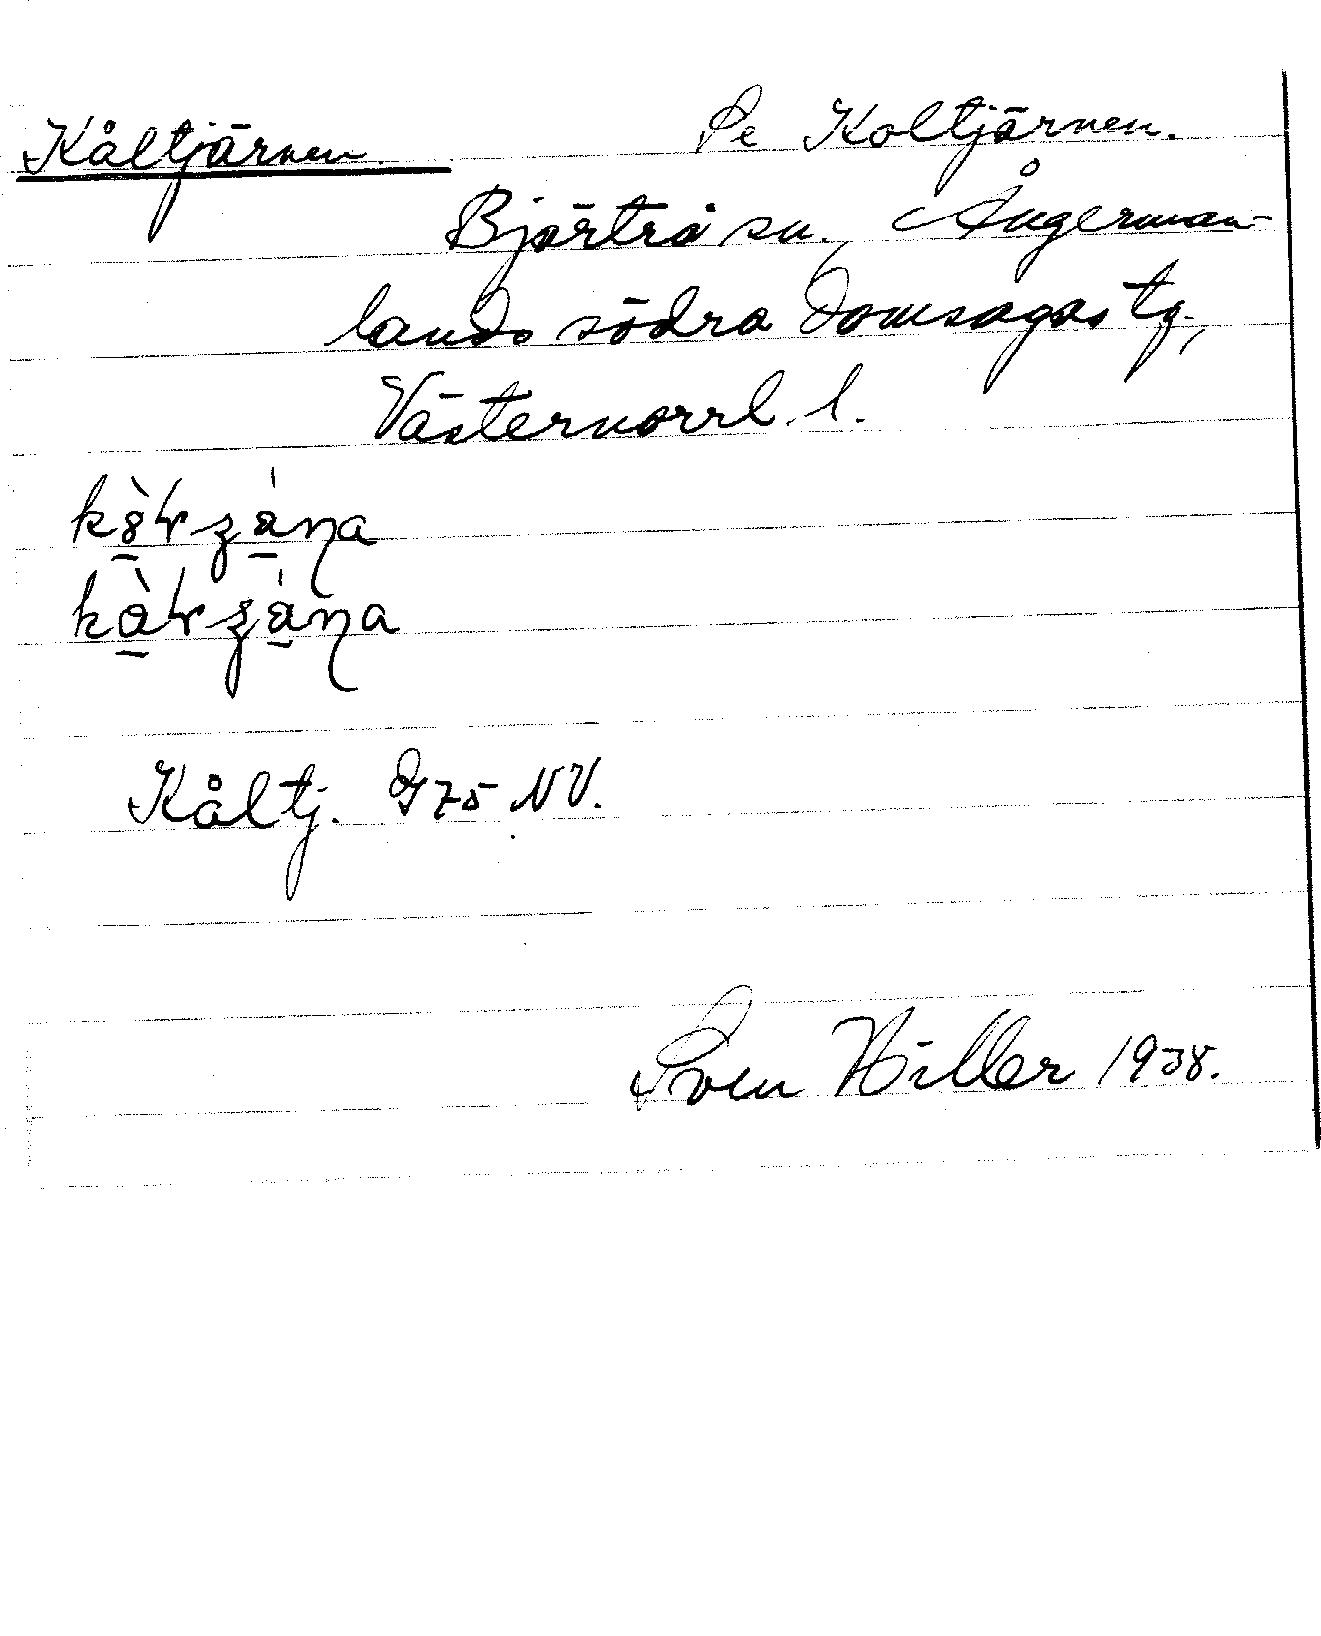 Kåltjärnen. Se Koltjärnen.
Bjärtrå sn., Ångerman-
lands södra domsagas tg.,
Västernorrl. l.
Kåltj. G 75 NV.
Sven Hiller 1938.